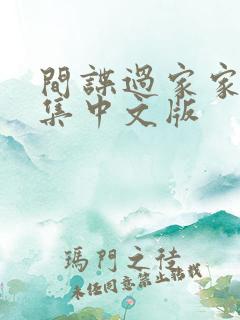 間諜過家家
集中文版
瑪門之徒
未任同意禁止轉載